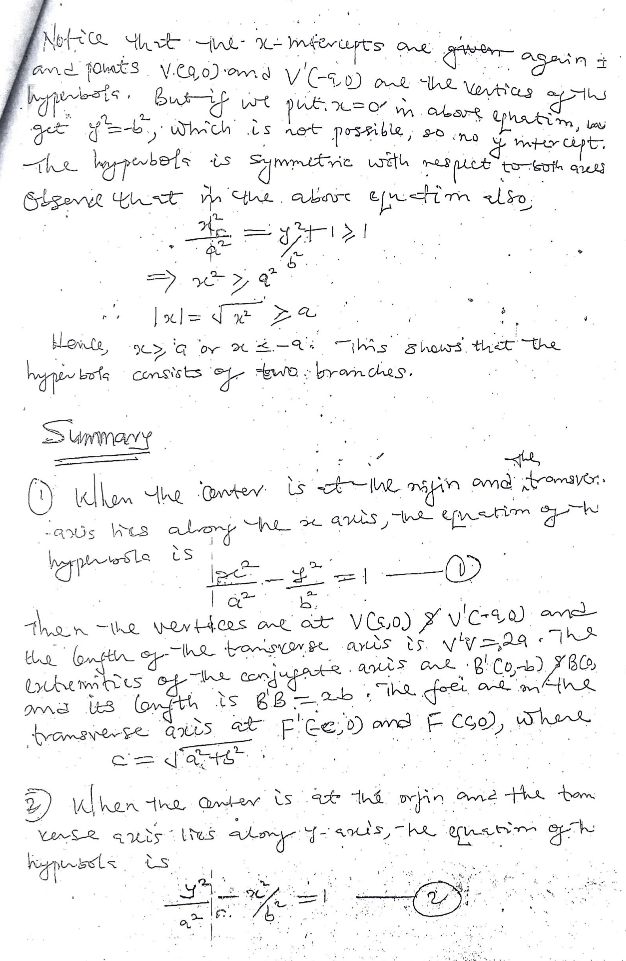 Notice that the x-intercepts are given again ±
and points V(a,0) and V'(-a,0) are the vertices of this
hyperbola. But if we put x=0 in above equation, we
get y²=-b², which is not possible, so no y intercept.
The hyperbola is symmetric with respect to both axes
Observe that in the above equation also,
x²/a² = y²/b² + 1 ≥ 1
⇒ x² ≥ a²
∴ |x| = √x² ≥ a
Hence, x ≥ a or x ≤ -a. This shows that the
hyperbola consists of two branches.
Summary
① When the center is at the origin and the transver.
axis lies along the x axis, the equation of th
hyperbola is
x²/a² - y²/b² = 1 —— ①
Then the vertices are at V(a,0) & V'(-a,0) and
the length of the transverse axis is V'V = 2a. The
extremities of the conjugate axis are B'(0,-b) & B(0,
and its length is B'B = 2b. The foci are on the
transverse axis at F'(-c,0) and F(c,0), where
c = √a²+b².
② When the center is at the orjin and the tran
verse axis lies along y-axis, the equation of th
hyperbola is
y²/a² - x²/b² = 1 —— ②